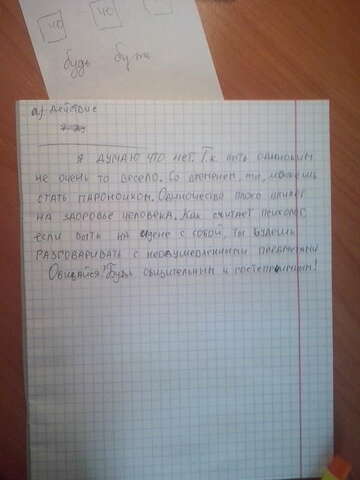 не
че
будь бу
а) действие
Я думаю что нет. Т.к жить одиноким
не очень то весело. Со временем, ты, можешь
стать пароноиком. Одиночество плохо влияет
на здоровье человека. Как считает психолог,
если быть на едене с собой, ты будешь
разговаривать с неодушевленными предметами
Общайся! Будь общительным и гостеприимным!